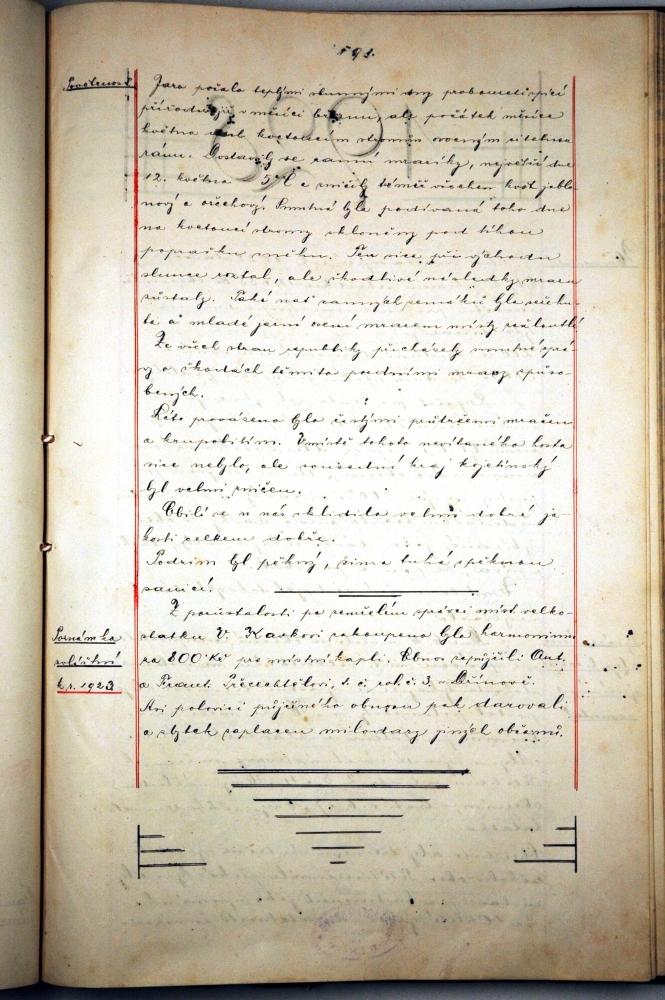 591.
Povětrnost.
Jaro počalo teplými slunnými dny probouzejícími
přírodu již v měsíci březnu, ale počátek měsíce
května stal kvetoucím stromům ovocným
ránu. Dostavily se ranní mrazíky, největší dne
12. května 5°C a zničily téměř všechen květ jablo-
ňový a ořechový. Smutná byla podívaná toho dne
na kvetoucí stromy skloněny pod tíhou
poprašku sněhu. Ten sice při východu
slunce roztál, ale škodlivé následky mrazu
zůstaly. Také nať ranných zemáků byla
a mladé jarní osení mrazem místy
Ze všech stran republiky přicházely smutné zprá-
vy o škodách těmito pozdními mrazy způso-
bených.
Léto provázeno bylo častými průtržemi mračen
a krupobitím. V místě tohoto nevítaného hosta
sice nebylo, ale sousední kraj kojetínský
byl velmi zničen.
Obilí se u nás sklidilo velmi dobré ja-
kosti celkem dobře.
Podzim byl pěkný, zima tuhá s pěknou
sanicí.
Poznámka
zvláštní
k r. 1923
Z pozůstalosti po zemřelém správci míst. velko-
statku V. Kavkovi zakoupeno bylo harmonium
za 800 Kč pro místní kapli. Obnos zapůjčili Ant.
a Frant. Přecechtělovi, s. č. rol. č. 3. v Břínově.
Asi polovici půjčeného obnosu pak darovali
a zbytek zaplacen milodary jiných občanů.